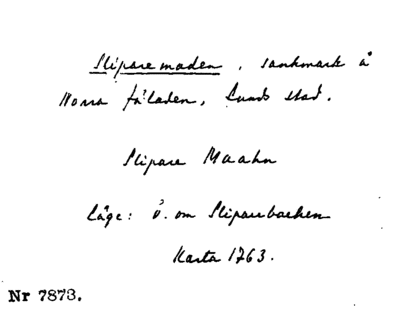 Sliparemaden, sankmark å
Norra fäladen, Lunds stad.
Slipare Maahn
Läge: Ö. om Sliparebacken
Karta 1763.
Nr 7873.